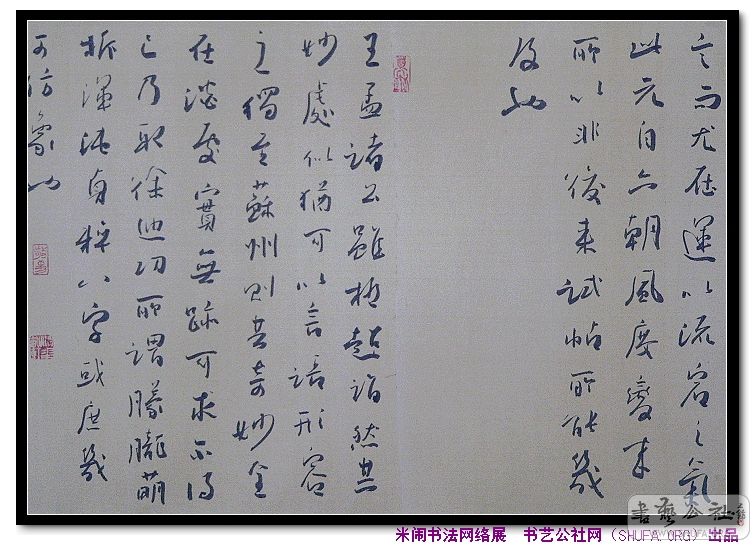 言而尤在運以流宕之氣
此元自六朝風度變來
所以非後來試帖所能幾
及也
王孟諸公雖極超詣然其
妙處似猶可以言語形容
之獨韋蘇州則其奇妙全
在淡處實無跡可求不得
已乃取徐迪功所謂朦朧萌
拆渾沌貞粹八字或庶幾
可仿象也
书艺公社
米闹书法网络展 书艺公社网（SHUFA.ORG）出品